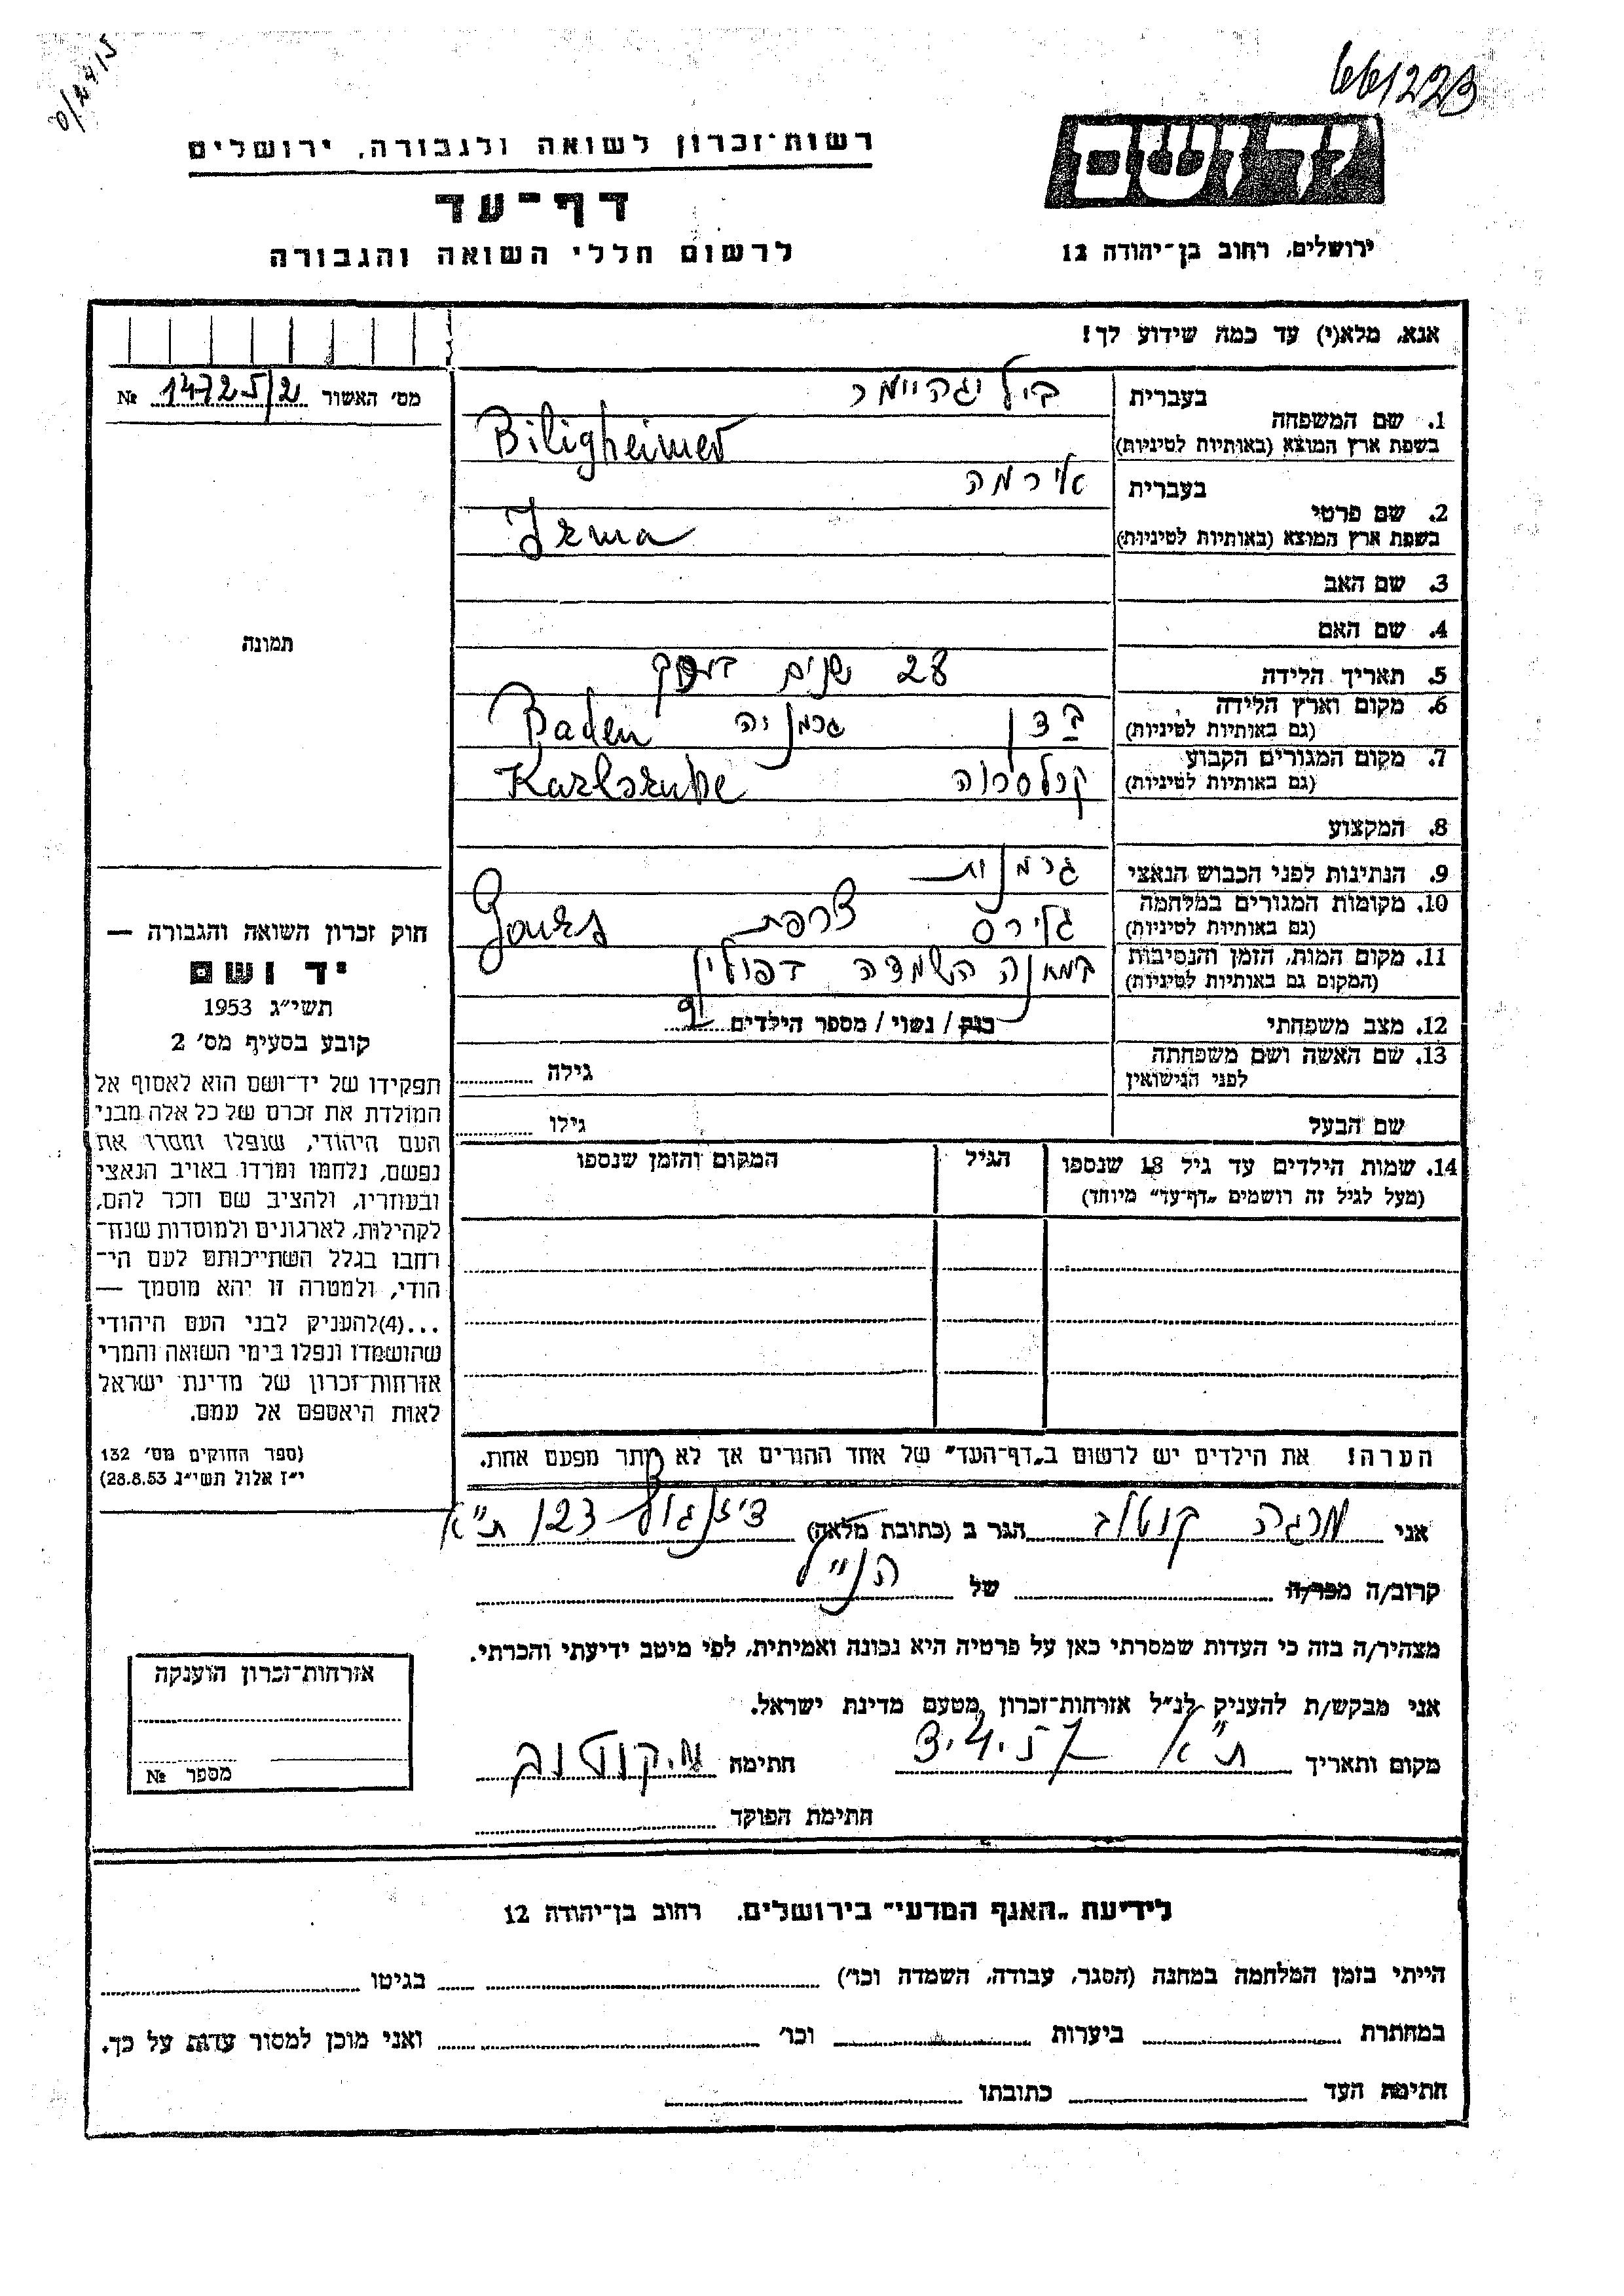 661223
יד ושם
ירושלים, רחוב בן-יהודה 12
רשות-זכרון לשואה ולגבורה, ירושלים
דף-עד
לרשום חללי השואה והגבורה
אנא, מלא(י) עד כמה שידוע לך!
מס' האשור 14725/2 №
תמונה
חוק זכרון השואה והגבורה —
יד ושם
תשי"ג 1953
קובע בסעיף מס' 2
תפקידו של יד-ושם הוא לאסוף אל
המולדת את זכרם של כל אלה מבני
העם היהודי, שנפלו ומסרו את
נפשם, נלחמו ומרדו באויב הנאצי
ובעוזריו, ולהציב שם וזכר להם,
לקהילות, לארגונים ולמוסדות שנח-
רבו בגלל השתייכותם לעם הי-
הודי, ולמטרה זו יהא מוסמך —
...(4)להעניק לבני העם היהודי
שהושמדו ונפלו בימי השואה והמרי
אזרחות-זכרון של מדינת ישראל
לאות היאספם אל עמם.
(ספר החוקים מס' 132
י"ז אלול תשי"ג 28.8.53)
1. שם המשפחה בעברית ביליגהיימר
בשפת ארץ המוצא (באותיות לטיניות) Biligheimer
2. שם פרטי בעברית אירמה
בשפת ארץ המוצא (באותיות לטיניות) Irma
3. שם האב
4. שם האם
5. תאריך הלידה 28 שנים
6. מקום וארץ הלידה בדן גרמניה Baden
(גם באותיות לטיניות)
7. מקום המגורים הקבוע קרלסרוה Karlsruhe
(גם באותיות לטיניות)
8. המקצוע
9. הנתינות לפני הכבוש הנאצי גרמנית
10. מקומות המגורים במלחמה גוירס צרפת Gours
(גם באותיות לטיניות)
11. מקום המות, הזמן והנסיבות במחנה השמדה בפולין
(המקום גם באותיות לטיניות)
12. מצב משפחתי רווק / נשוי / מספר הילדים
13. שם האשה ושם משפחתה גילה
לפני הנישואין
שם הבעל גילו
14. שמות הילדים עד גיל 18 שנספו הגיל המקום והזמן שנספו
(מעל לגיל זה רושמים „דף-עד" מיוחד)
הערה! את הילדים יש לרשום ב„דף-העד" של אחד ההורים אך לא יותר מפעם אחת.
אני מרגה קוטלב הגר ב (כתובת מלאה) דיזנגוף 123 ת"א
קרוב/ה מכר/ה של הנ"ל
מצהיר/ה בזה כי העדות שמסרתי כאן על פרטיה היא נכונה ואמיתית, לפי מיטב ידיעתי והכרתי.
אני מבקש/ת להעניק לנ"ל אזרחות-זכרון מטעם מדינת ישראל.
מקום ותאריך ת"א 3.4.57 חתימה
חתימת הפוקד
אזרחות-זכרון הוענקה
מספר №
לידיעת „האגף המדעי" בירושלים, רחוב בן-יהודה 12
הייתי בזמן המלחמה במחנה (הסגר, עבודה, השמדה וכו') בגיטו
במחתרת ביערות וכו' ואני מוכן למסור עדות על כך.
חתימת העד כתובתו